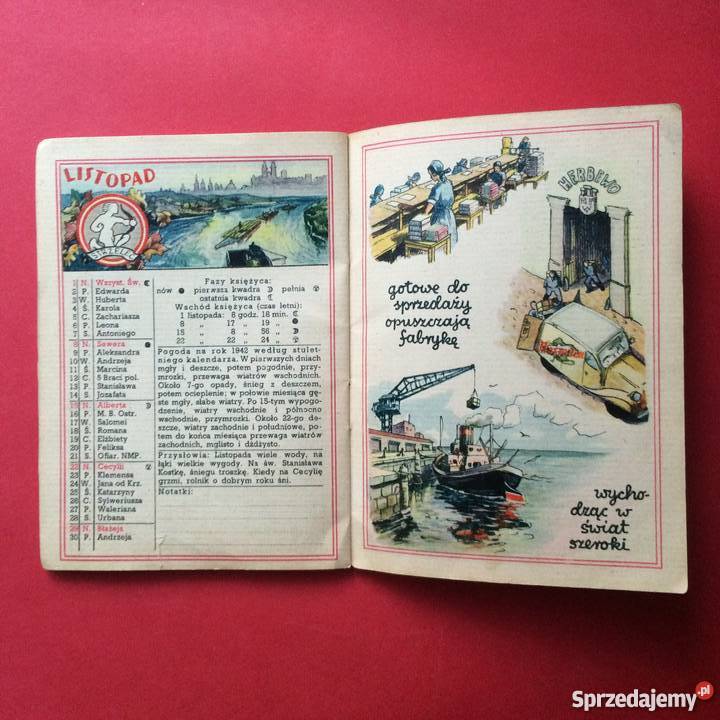 LISTOPAD
STRZELEC
1 N. Wszyst. Św.
2 P. Edwarda
3 W. Huberta
4 Ś. Karola
5 C. Zachariasza
6 P. Leona
7 S. Antoniego
8 N. Sewera
9 P. Aleksandra
10 W. Andrzeja
11 Ś. Marcina
12 C. 5 Braci pol.
13 P. Stanisława
14 S. Jozafata
15 N. Alberta
16 P. M. B. Ostr.
17 W. Salomei
18 Ś. Romana
19 C. Elżbiety
20 P. Feliksa
21 S. Ofiar. NMP.
22 N. Cecylii
23 P. Klemensa
24 W. Jana od Krz.
25 Ś. Katarzyny
26 C. Sylweriusza
27 P. Waleriana
28 S. Urbana
29 N. Błażeja
30 P. Andrzeja
Fazy księżyca:
nów pierwsza kwadra pełnia
ostatnia kwadra
Wschód księżyca (czas letni):
1 listopada: 6 godz. 18 min.
8 „ 17 „ 19 „
15 „ 8 „ 56 „
22 „ 22 „ 24 „
Pogoda na rok 1942 według stulet-
niego kalendarza. W pierwszych dniach
mgły i deszcze, potem pogodnie, przy-
mrozki, przewaga wiatrów wschodnich.
Około 7-go opady, śnieg z deszczem,
potem ocieplenie; w połowie miesiąca gę-
ste mgły, słabe wiatry. Po 15-tym wypogo-
dzenie, wiatry wschodnie i północno
wschodnie, przymrozki. Około 22-go de-
szcze, wiatry zachodnie i południowe, po-
tem do końca miesiąca przewaga wiatrów
zachodnich, mglisto i dżdżysto.
Przysłowia: Listopada wiele wody, na
łąki wielkie wygody. Na św. Stanisława
Kostkę, śniegu troszkę. Kiedy na Cecylię
grzmi, rolnik o dobrym roku śni.
Notatki:
HERBEWO
gotowe do
sprzedaży
opuszczają
fabrykę
wycho-
dząc w
świat
szeroki
Sprzedajemy.pl